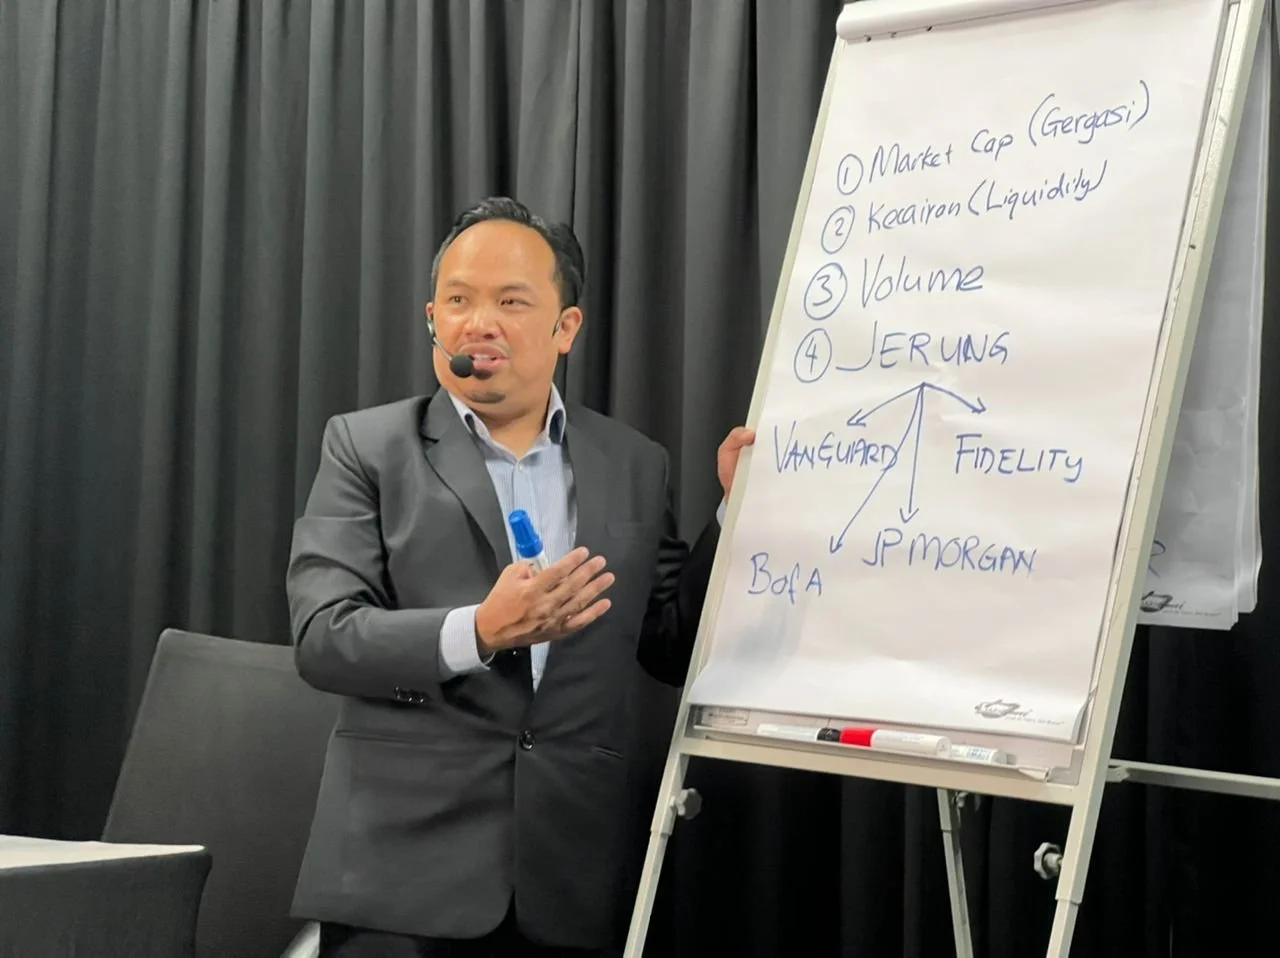 ① Market Cap (Gergasi)
② Kecairan (Liquidity)
③ Volume
④ JERUNG
VANGUARD FIDELITY
BofA JP MORGAN